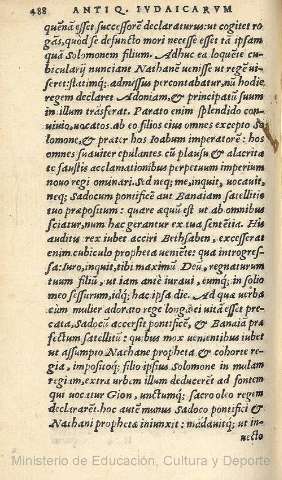 488 ANTIQ. IVDAICARVM
quēnā esset successorē declaraturus: ut cogitet ro
gās, quòd se defuncto mori necesse esset tā ipsam
quā Solomonem filium. Adhuc ea loquēte cu
bicularij nunciant Nathanē uenisse ut regē ui-
seret: statimq́; admissus percontabatur, nū hodie
regem declaret Adoniam, & principatū suum
in illum trāsferat. Parato enim splendido con-
uiuio, uocatos ab eo filios eius omnes excepto So
lomone, & præter hos Ioabum imperatorē: hos
omnes suauiter epulantes cū plausu & alacrita
te faustis acclamationibus perpetuum imperium
nouo regi ominari. Sed neq; me, inquit, uocauit,
neq; Sadocum pontificē aut Banaiam satellitio
tuo præpositum: quare æquū est ut ab omnibus
sciatur, num hæc gerantur ex tua sentētia. His
auditis rex iubet acciri Bethsaben, excesserat
enim cubiculo propheta ueniēte: qua introgres-
sa: Iuro, inquit, tibi maximū Deū, regnaturum
tuum filiū, ut iam antè iuraui, eumq́; in solio
meo sessurum, idq́; hac ipsa die. Ad quæ uerba
cùm mulier adorato rege longæui uitā esset pre-
cata, Sadocū accersit pontificē, & Banaiā præ
fectum satellitū: quibus mox uenientibus iubet
ut assumpto Nathane propheta & cohorte re-
gia, impositoq́; filio ipsius Solomone in mulam
regiam, extra urbem illum deducerēt ad fontem
qui uocatur Gion, unctumq́; sacro oleo regem
declararēt. hoc autē munus Sadoco pontifici &
Nathani prophetæ iniunxit: mādauitq́; ut in-
uecto
Ministerio de Educación, Cultura y Deporte